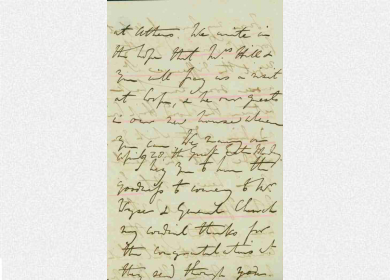 at Athens. We unite in
the hope that Mrs Hill &
you will pay us a visit
at Corfu, & be our guests
in our new house when
you can.
I beg you to have the
goodness to convey to Mr
Wyse & General Church
my cordial thanks for
the congratulations wh.
they send through you.